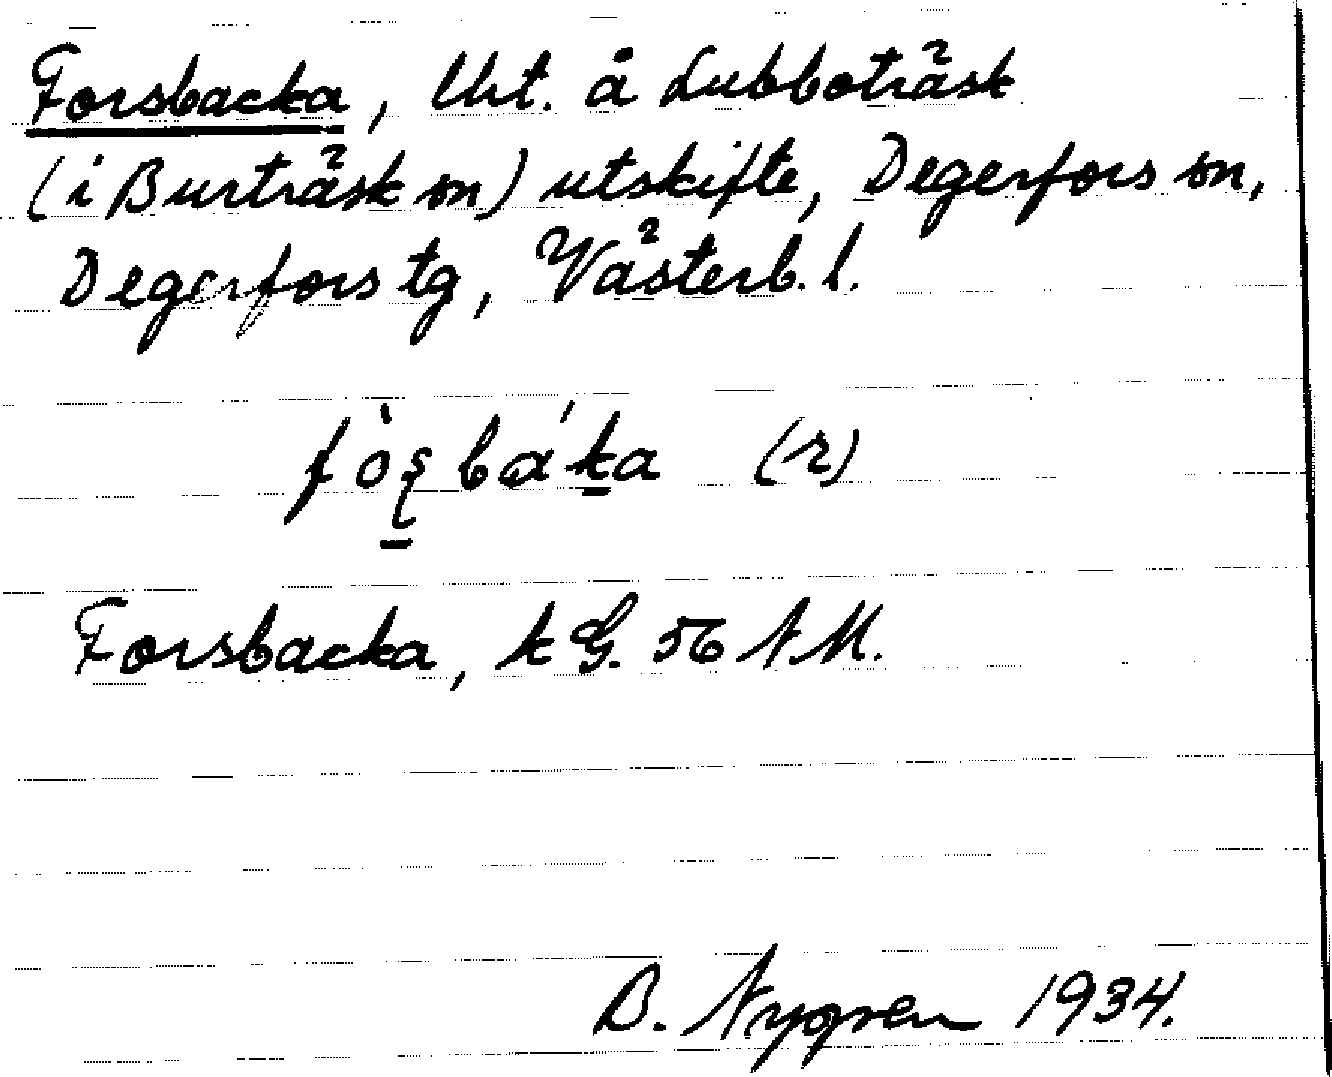 Forsbacka, Utt. å Lubboträsk
(i Burträsk sn) utskifte, Degerfors sn,
Degerfors tg, Västerb. l.
fòʂbáka (r)
Forsbacka, k G. 56 A M.
B. Nygren 1934.